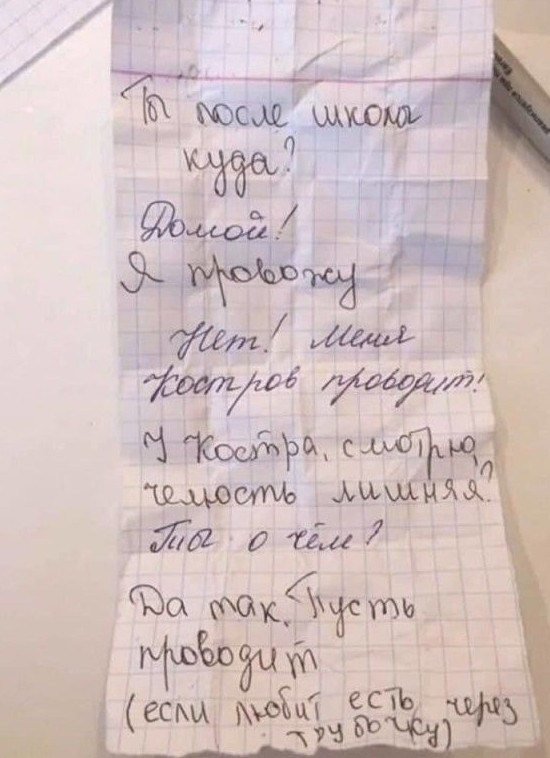 Ты после школы
куда?
Домой!
Я провожу
Нет! Меня
Костров проводит!
У Костра, смотрю,
челюсть лишняя?
Ты о чём?
Да так. Пусть
проводит
(если любит есть через
трубочку)